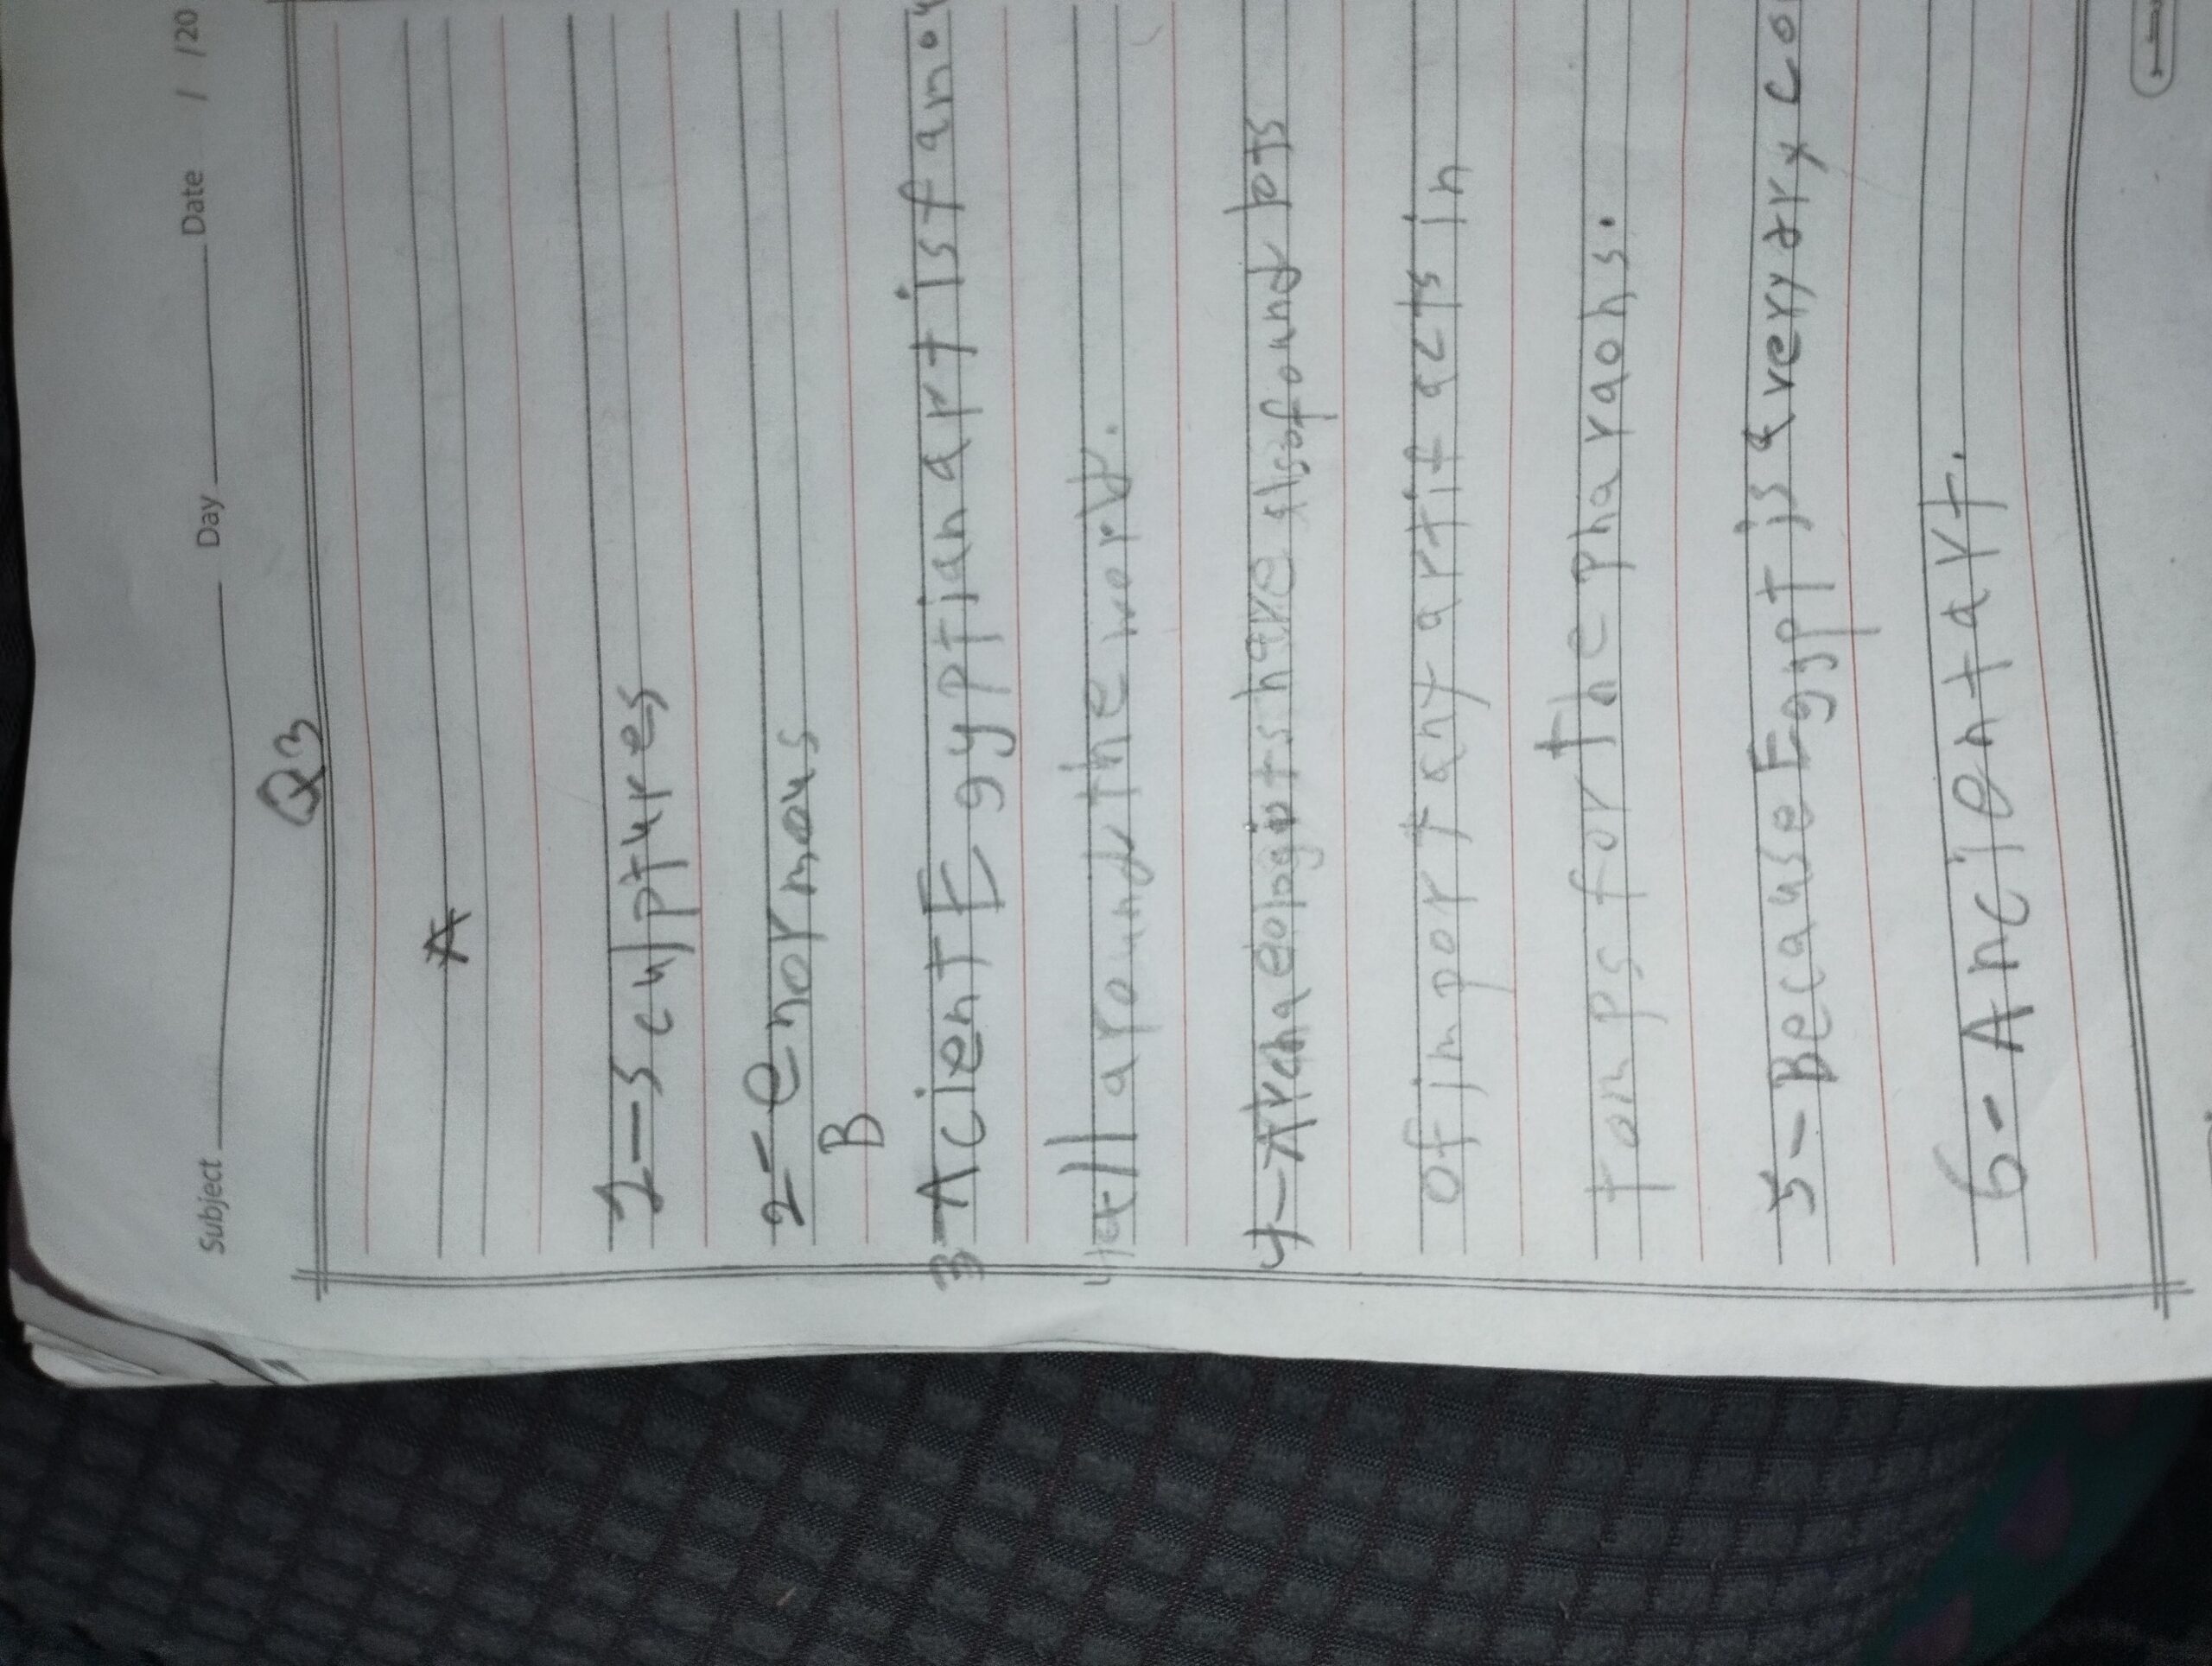 Subject Day Date / /20
Q3
A
1-sculptures
2-enormous
B
3-Acient Egyptian art is famou
all around the world.
4-Archaeologists have also found lots
of importany artifacts in
tomps for the pharaohs.
5-Because Egypt is a very dry co
6-Ancient art.